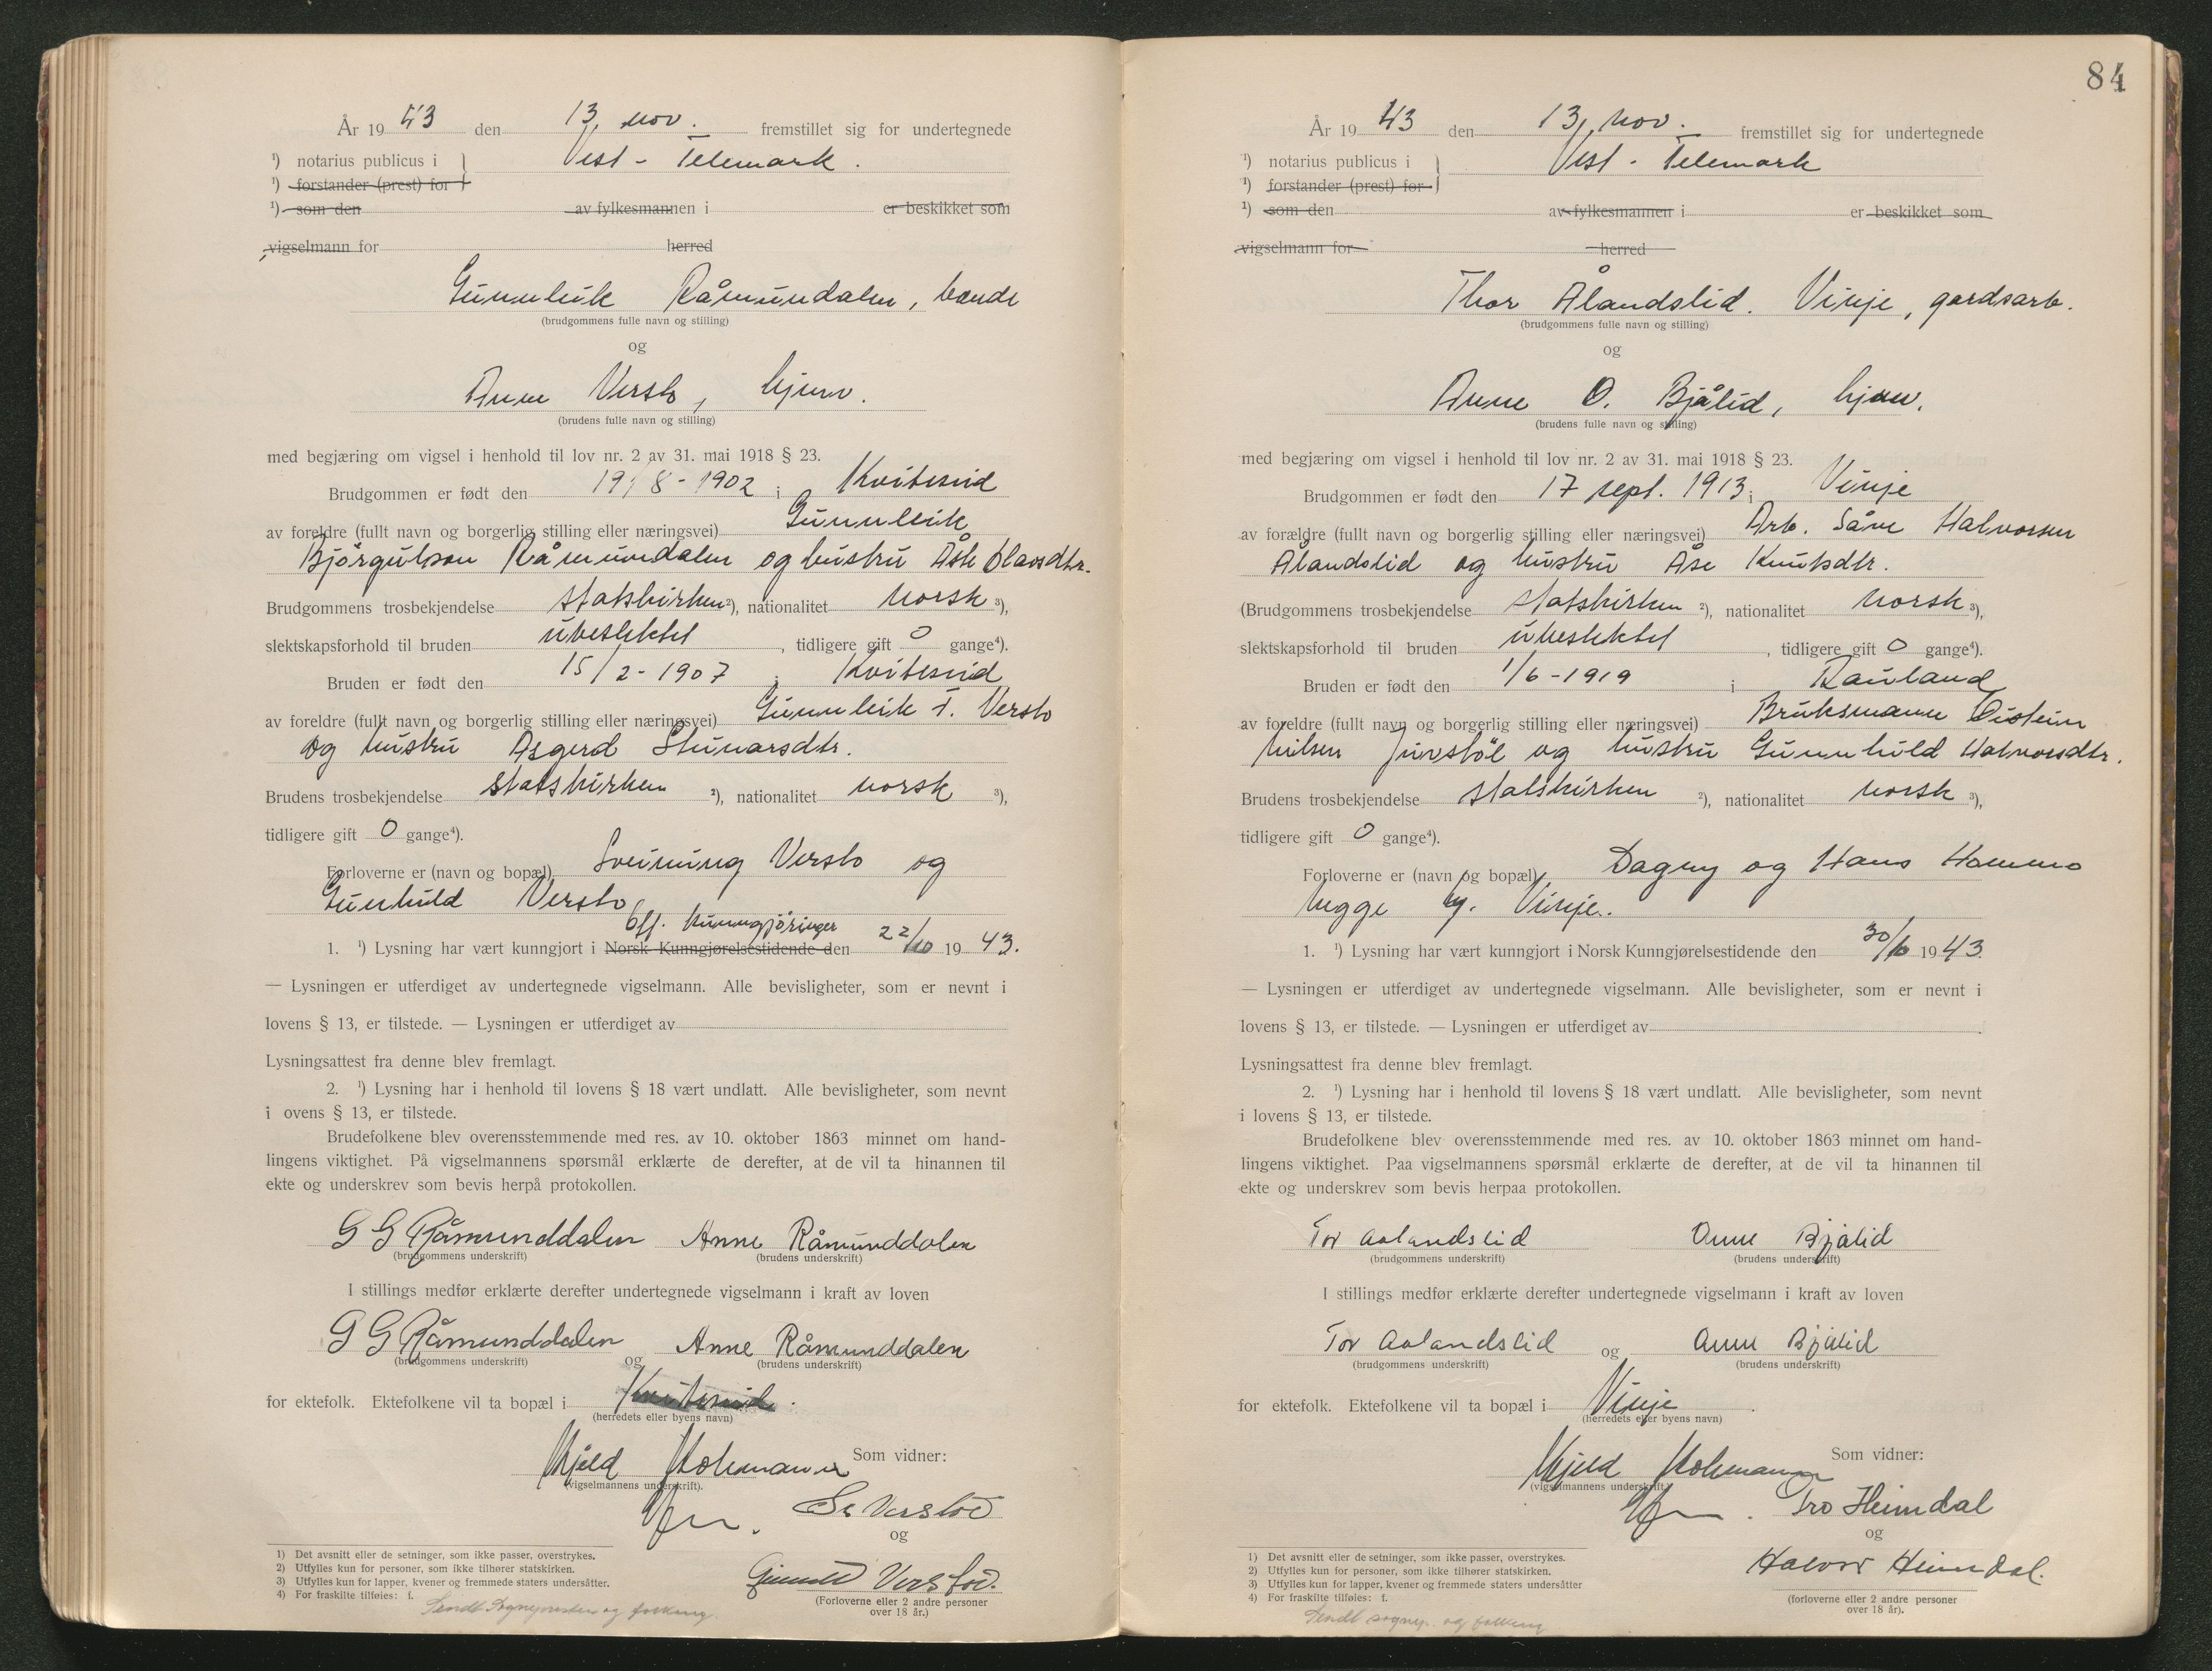 År 19 43 den 13. nov. fremstillet sig for undertegnede
¹) notarius publicus i } Vest - Telemark.
¹) forstander (prest) for
¹) som den av fylkesmannen i er beskikket som
vigselmann for herred
Gunnleik Råmundalen, bonde
(brudgommens fulle navn og stilling)
og
Anne Versto, hjem.
(brudens fulle navn og stilling)
med begjæring om vigsel i henhold til lov nr. 2 av 31. mai 1918 § 23.
Brudgommen er født den 19/8 - 1902 i Kviteseid
av foreldre (fullt navn og borgerlig stilling eller næringsvei) Gunnleik
Bjørgulson Råmundalen og hustru Åste Olavsdtr.
Brudgommens trosbekjendelse statskirken ²), nationalitet norsk ³),
slektskapsforhold til bruden ubeslektet, tidligere gift 0 gange⁴).
Bruden er født den 15/2 - 1907 i Kviteseid
av foreldre (fullt navn og borgerlig stilling eller næringsvei) Gunnleik T. Versto
og hustru Asgerd Steinarsdtr.
Brudens trosbekjendelse statskirken ²), nationalitet norsk ³),
tidligere gift 0 gange⁴).
Forloverne er (navn og bopæl) Sveinung Versto og
Gunhild Versto
Off. Kunngjøringer
1. ¹) Lysning har vært kunngjort i Norsk Kunngjørelsestidende den 22/10 1943.
— Lysningen er utferdiget av undertegnede vigselmann. Alle bevisligheter, som er nevnt i
lovens § 13, er tilstede. — Lysningen er utferdiget av
Lysningsattest fra denne blev fremlagt.
2. ¹) Lysning har i henhold til lovens § 18 vært undlatt. Alle bevisligheter, som nevnt
i ovens § 13, er tilstede.
Brudefolkene blev overensstemmende med res. av 10. oktober 1863 minnet om hand-
lingens viktighet. På vigselmannens spørsmål erklærte de derefter, at de vil ta hinannen til
ekte og underskrev som bevis herpå protokollen.
G G Råmunddalen Anne Råmunddalen
(brudgommens underskrift) (brudens underskrift)
I stillings medfør erklærte derefter undertegnede vigselmann i kraft av loven
G G Råmunddalen og Anne Råmunddalen
(brudgommens underskrift) (brudens underskrift)
for ektefolk. Ektefolkene vil ta bopæl i Kviteseid.
(herredets eller byens navn)
Kjeld Som vidner:
(vigselmannens underskrift).
Sv Verstod
og
Gunnild Verstod.
(Forloverne eller 2 andre personer
over 18 år.)
1) Det avsnitt eller de setninger, som ikke passer, overstrykes.
2) Utfylles kun for personer, som ikke tilhører statskirken.
3) Utfylles kun for lapper, kvener og fremmede staters undersåtter.
4) For fraskilte tilføies: f.
Sendt Sognepresten og folkereg.
84
År 19 43 den 13. nov. fremstillet sig for undertegnede
¹) notarius publicus i } Vest - Telemark
¹) forstander (prest) for
¹) som den av fylkesmannen i er beskikket som
vigselmann for herred
Thor Ålandslid. Vinje, gardsarb.
(brudgommens fulle navn og stilling)
og
Anne O. Bjålid, hjem.
(brudens fulle navn og stilling)
med begjæring om vigsel i henhold til lov nr. 2 av 31. mai 1918 § 23.
Brudgommen er født den 17 sept. 1913 i Vinje
av forældre (fullt navn og borgerlig stilling eller næringsvei) Arb. Såve Halvorsen
Ålandslid og hustru Åse Knutsdtr.
(Brudgommens trosbekjendelse statskirken ²), nationalitet norsk ³),
slektskapsforhold til bruden ubeslektet, tidligere gift 0 gange⁴).
Bruden er født den 1/6 - 1919 i Rauland
av foreldre (fullt navn og borgerlig stilling eller næringsvei) Bruksmann Øistein
Nilsen Juvstøl og hustru Gunnhild Halvorsdtr.
Brudens trosbekjendelse statskirken ²), nationalitet norsk ³),
tidligere gift 0 gange⁴).
Forloverne er (navn og bopæl) Dagny og Hans Hommo
begge Vinje.
1. ¹) Lysning har vært kunngjort i Norsk Kunngjørelsestidende den 30/10 1943.
— Lysningen er utferdiget av undertegnede vigselmann. Alle bevisligheter, som er nevnt i
lovens § 13, er tilstede. — Lysningen er utferdiget av
Lysningsattest fra denne blev fremlagt.
2. ¹) Lysning har i henhold til lovens § 18 vært undlatt. Alle bevisligheter, som nevnt
i lovens § 13, er tilstede.
Brudefolkene blev overensstemmende med res. av 10. oktober 1863 minnet om hand-
lingens viktighet. Paa vigselmannens spørsmål erklærte de derefter, at de vil ta hinannen til
ekte og underskrev som bevis herpaa protokollen.
Tor Aalandslid Anne Bjålid
(brudgommens underskrift) (brudens underskrift)
I stillings medfør erklærte derefter undertegnede vigselmann i kraft av loven
Tor Aalandslid og Anne Bjålid
(brudgommens underskrift) (brudens underskrift)
for ektefolk. Ektefolkene vil ta bopæl i Vinje.
(herredets eller byens navn)
Kjeld Som vidner:
(vigselmannens underskrift)
Tro Heimdal
og
Halvor Heimdal.
(forloverne eller 2 andre personer
over 18 år).
1) Det avsnitt eller de setninger, som ikke passer, overstrykes.
2) Utfylles kun for personer, som ikke tilhører statskirken.
3) Utfylles kun for lapper, kvener og fremmede staters undersåtter
4) For fraskilte tilføies: f.
Sendt sognepr. og folkereg.